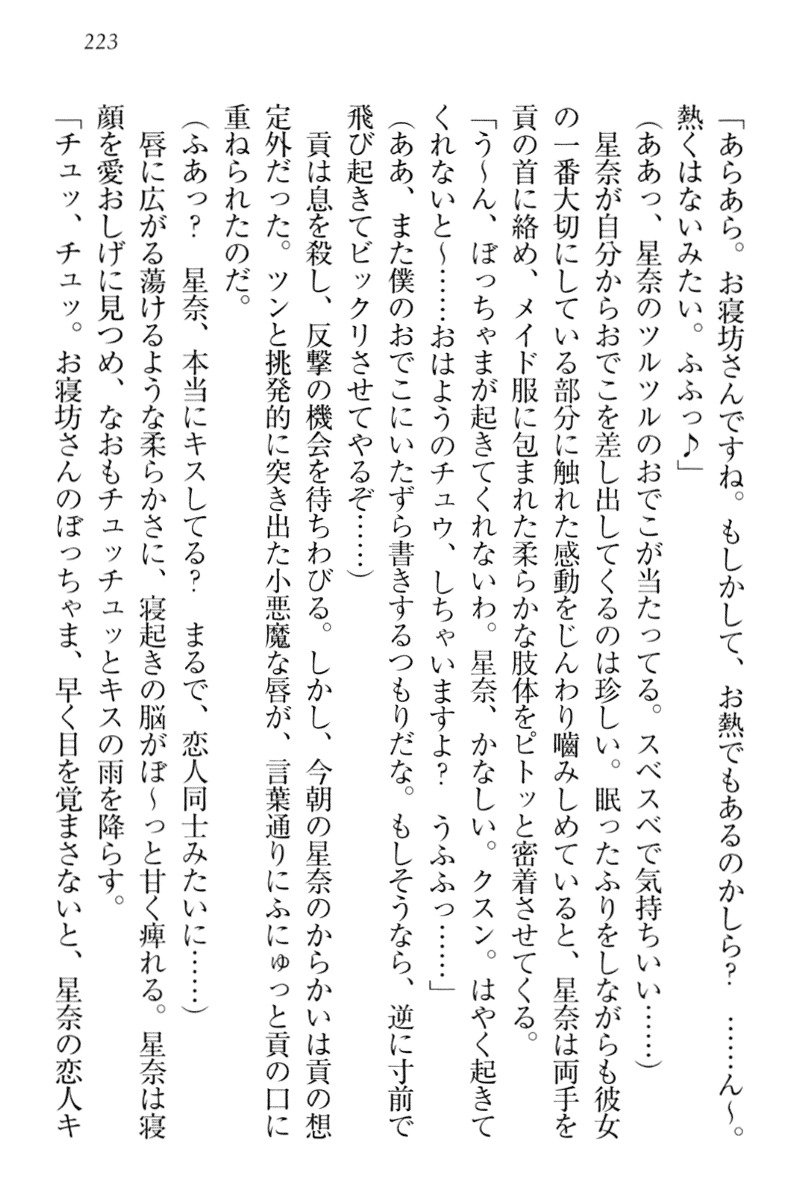 223
「あらあら。お寝坊さんですね。もしかして、お熱でもあるのかしら？　……ん～。
熱くはないみたい。ふふっ♪」
（ああっ、星奈のツルツルのおでこが当たってる。スベスベで気持ちいい……）
　星奈が自分からおでこを差し出してくるのは珍しい。眠ったふりをしながらも彼女
の一番大切にしている部分に触れた感動をじんわり噛みしめていると、星奈は両手を
貢の首に絡め、メイド服に包まれた柔らかな肢体をピトッと密着させてくる。
「う～ん、ぼっちゃまが起きてくれないわ。星奈、かなしい。クスン。はやく起きて
くれないと～……おはようのチュウ、しちゃいますよ？　うふふっ……」
（ああ、また僕のおでこにいたずら書きするつもりだな。もしそうなら、逆に寸前で
飛び起きてビックリさせてやるぞ……）
　貢は息を殺し、反撃の機会を待ちわびる。しかし、今朝の星奈のからかいは貢の想
定外だった。ツンと挑発的に突き出た小悪魔な唇が、言葉通りにふにゅっと貢の口に
重ねられたのだ。
（ふあっ？　星奈、本当にキスしてる？　まるで、恋人同士みたいに……）
　唇に広がる蕩けるような柔らかさに、寝起きの脳がぼ～っと甘く痺れる。星奈は寝
顔を愛おしげに見つめ、なおもチュッチュッとキスの雨を降らす。
「チュッ、チュッ。お寝坊さんのぼっちゃま、早く目を覚まさないと、星奈の恋人キ